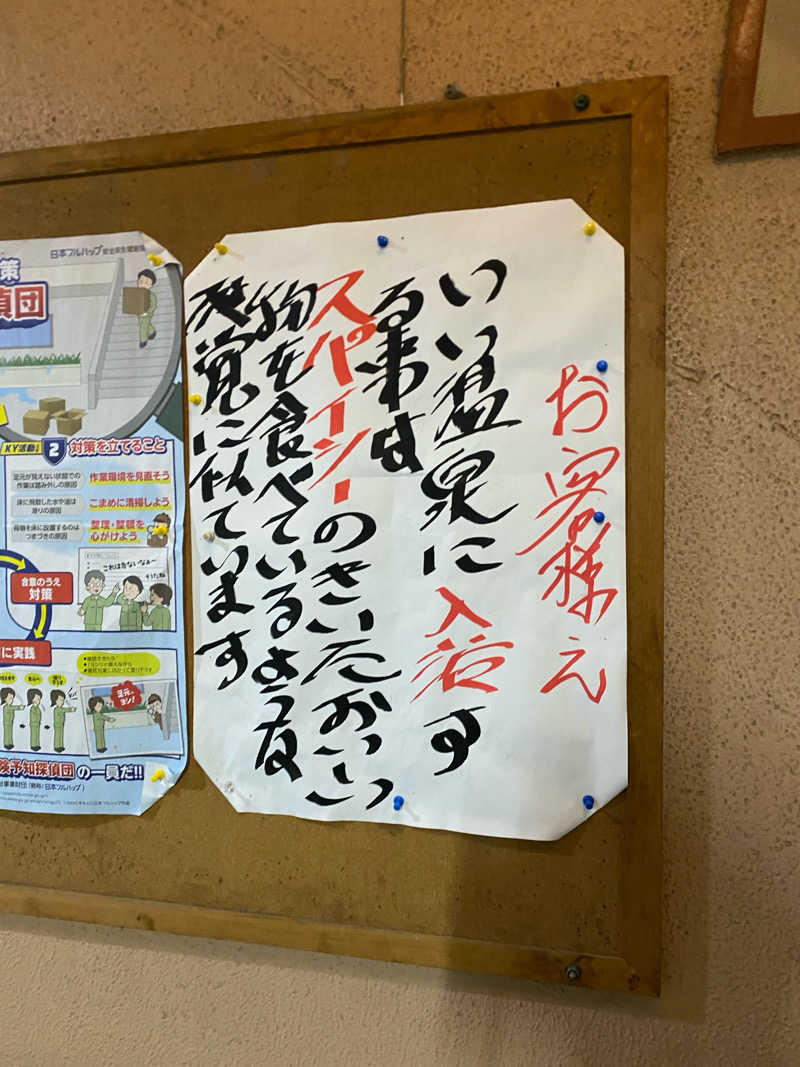 お客様え
いい温泉に入浴す
る事は
スパイシーのきいたおいしい
物を食べているような
感覚に似ています
日本フルハップ
策
偵団
KY活動
2
対策を立てること
足元が見えない状態での
作業は踏み外しの原因
作業環境を見直そう
床に飛散した水や油は
滑りの原因
こまめに清掃しよう
荷物を床に放置するのは
つまづきの原因
整理・整頓を
心がけよう
これは危ないなぁ〜
そうだね
合意のうえ
対策
に実践
足元、
ヨシ！
険予知探偵団の一員だ!!
日本フルハップ